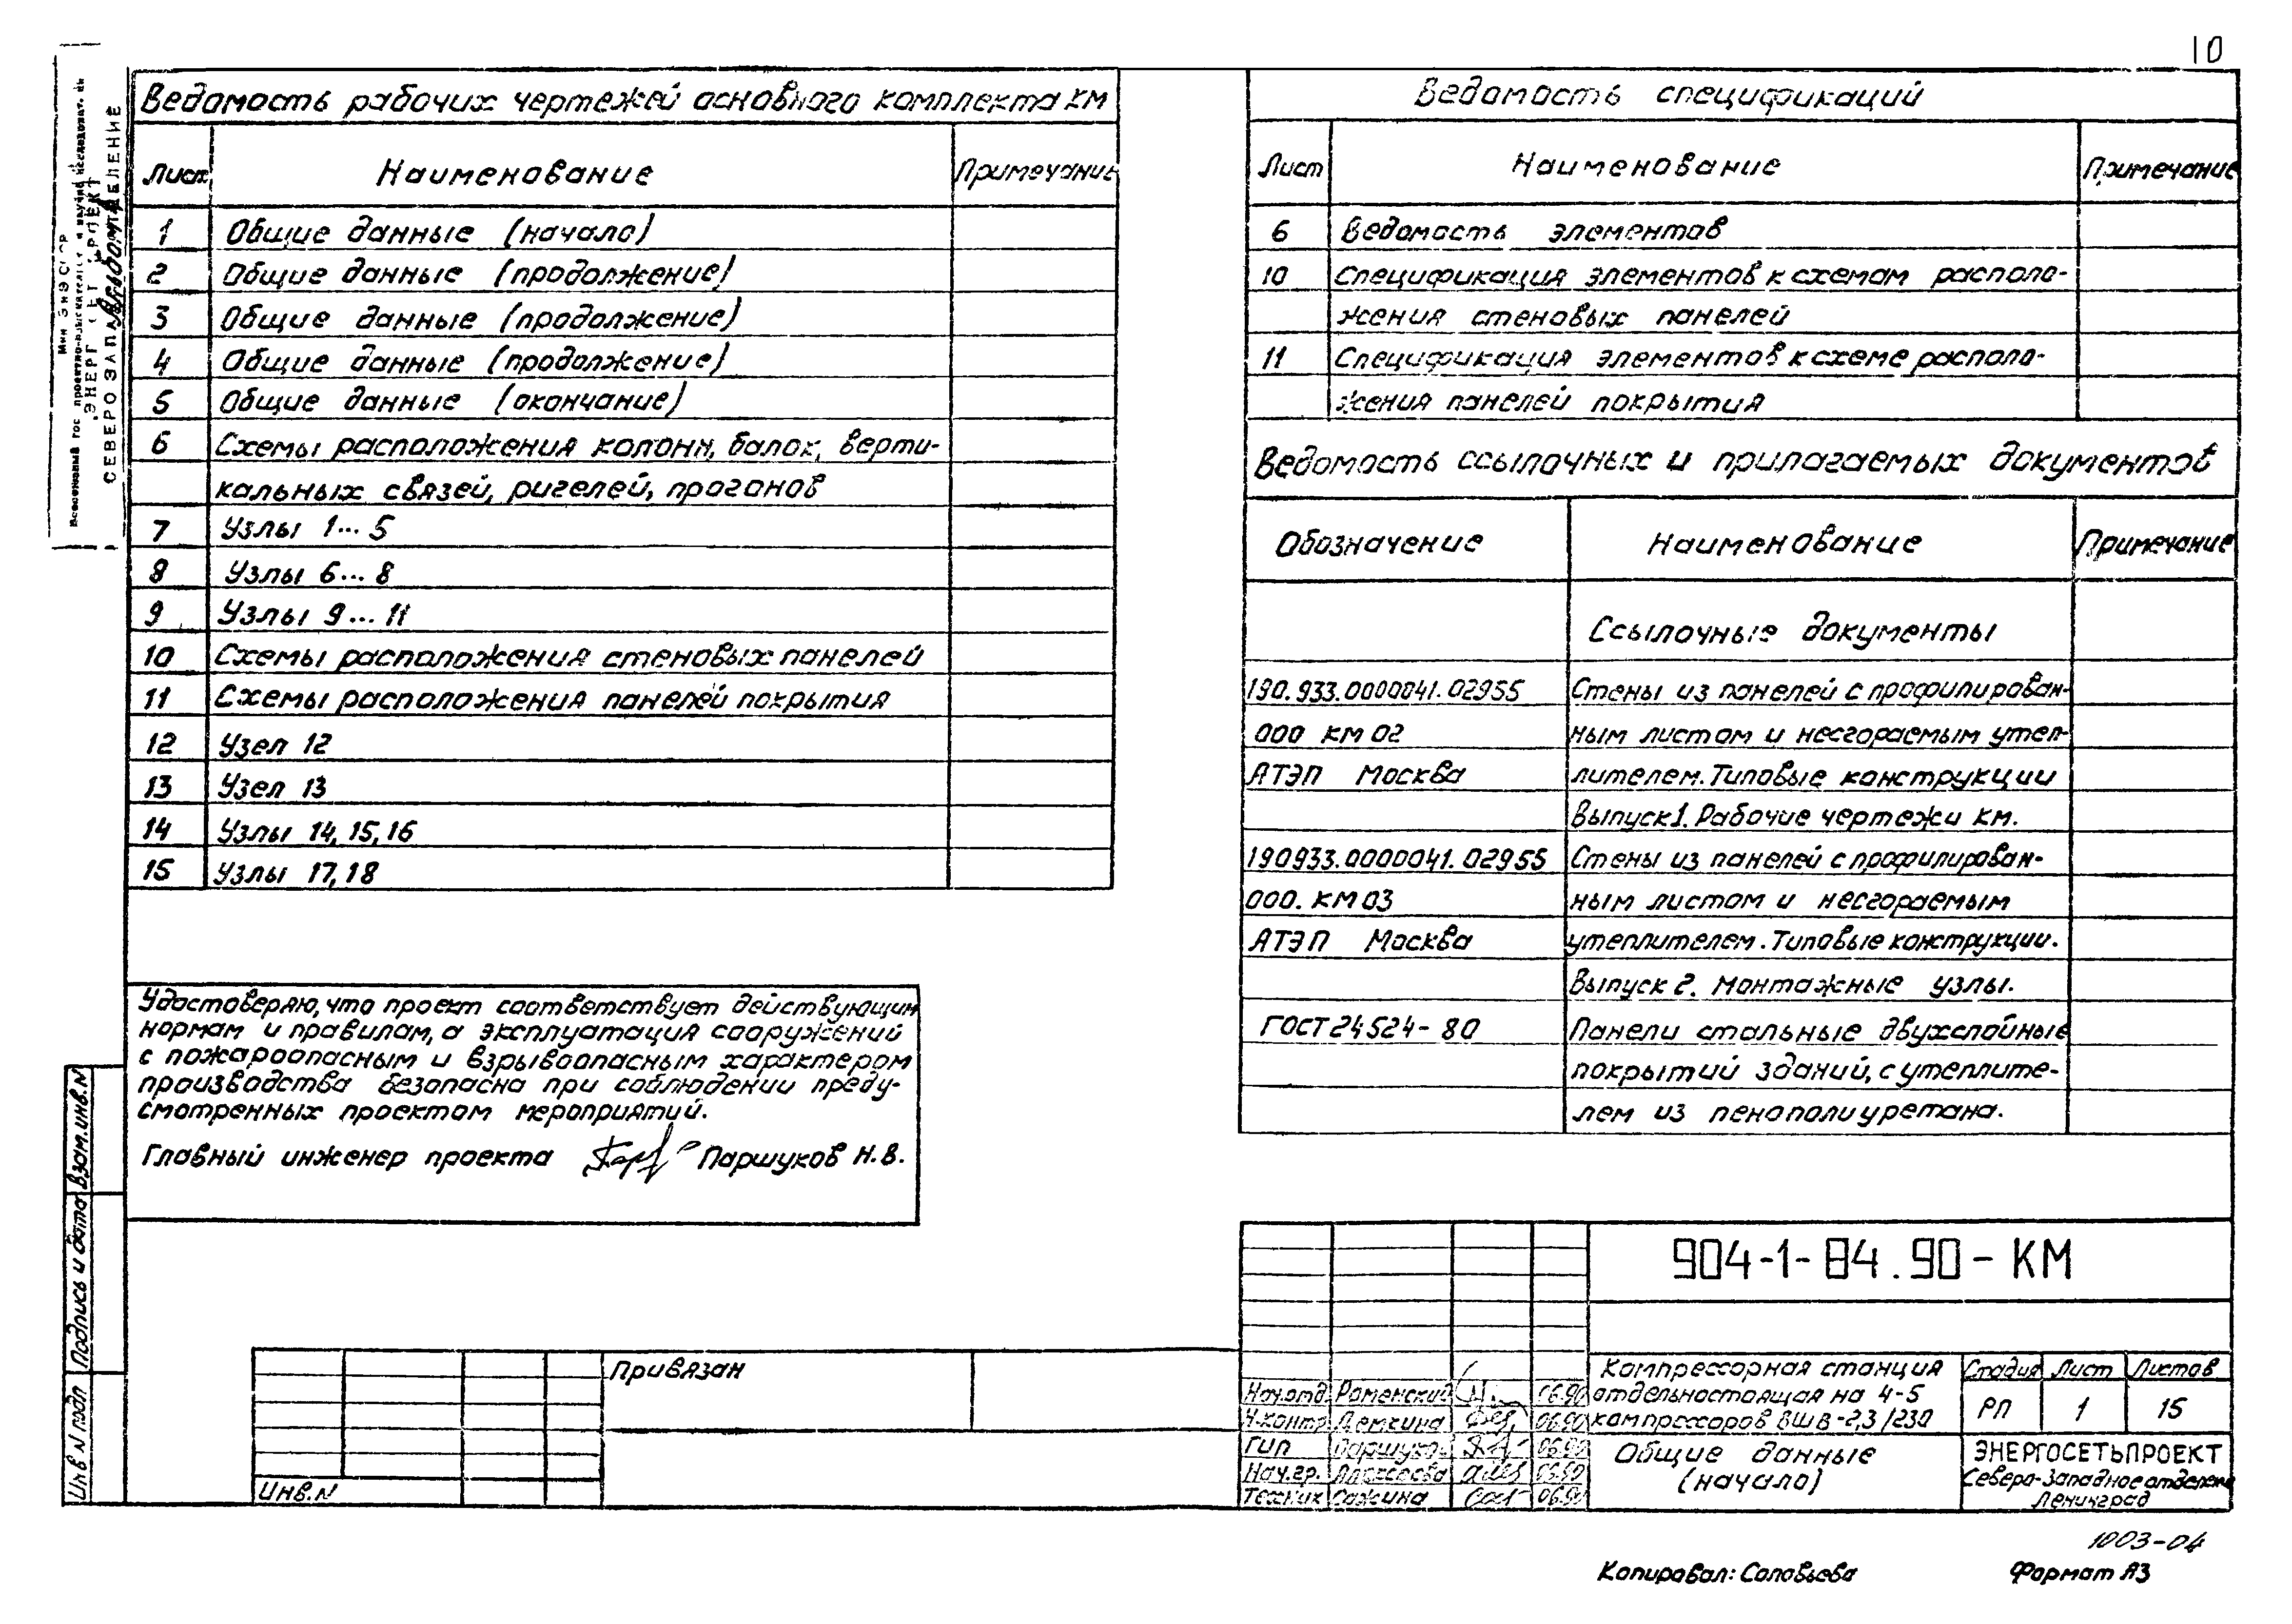 10
Ведомость рабочих чертежей основного комплекта КМ
Лист Наименование Примечание
1 Общие данные (начало)
2 Общие данные (продолжение)
3 Общие данные (продолжение)
4 Общие данные (продолжение)
5 Общие данные (окончание)
6 Схемы расположения колонн, балок, верти-
кальных связей, ригелей, прогонов
7 Узлы 1...5
8 Узлы 6...8
9 Узлы 9...11
10 Схемы расположения стеновых панелей
11 Схемы расположения панелей покрытия
12 Узел 12
13 Узел 13
14 Узлы 14, 15, 16
15 Узлы 17, 18
Удостоверяю, что проект соответствует действующим
нормам и правилам, а эксплуатация сооружений
с пожароопасным и взрывоопасным характером
производства безопасна при соблюдении преду-
смотренных проектом мероприятий.
Главный инженер проекта Паршуков Н.В.
Ведомость спецификаций
Лист Наименование Примечание
6 Ведомость элементов
10 Спецификация элементов к схемам располо-
жения стеновых панелей
11 Спецификация элементов к схеме располо-
жения панелей покрытия
Ведомость ссылочных и прилагаемых документов
Обозначение Наименование Примечание
Ссылочные документы
190.933.0000041.02955 Стены из панелей с профилирован-
000 КМ 02 ным листом и несгораемым утеп-
АТЭП Москва лителем. Типовые конструкции
Выпуск 1. Рабочие чертежи КМ.
190933.0000041.02955 Стены из панелей с профилирован-
000. КМ 03 ным листом и несгораемым
АТЭП Москва утеплителем. Типовые конструкции.
Выпуск 2. Монтажные узлы.
ГОСТ 24524-80 Панели стальные двухслойные
покрытий зданий, с утеплите-
лем из пенополиуретана.
Взам. инв. N
Подпись и дата
Инв N подл
Привязан
Инв. N
904-1-84.90-КМ
Компрессорная станция
отдельностоящая на 4-5
компрессоров ВШВ-2,3/230
Стадия Лист Листов
РП 1 15
Нач.отд. Роменский 06.90
Н.контр. Демкина 06.90
ГИП Паршуков 06.90
Нач.гр. 06.90
Техник Сажина 06.90
Общие данные
(начало)
ЭНЕРГОСЕТЬПРОЕКТ
Северо-Западное отделение
Ленинград
1003-04
Копировал: Соловьева Формат А3
СЕВЕРО ЗАПАДНОЕ ОТДЕЛЕНИЕ